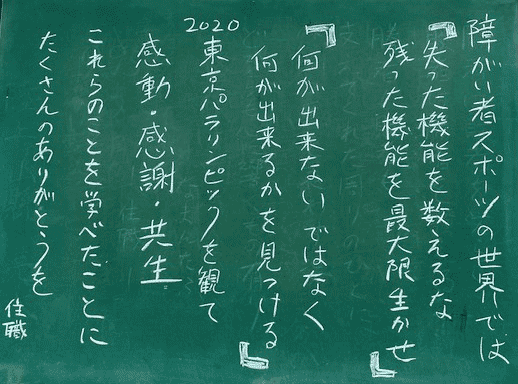 障がい者スポーツの世界では
『失った機能を数えるな
残った機能を最大限生かせ』
『何が出来ないではなく
何が出来るかを見つける』
2020
東京パラリンピックを観て
感動・感謝・共生
これらのことを学べたことに
たくさんのありがとうを
住職